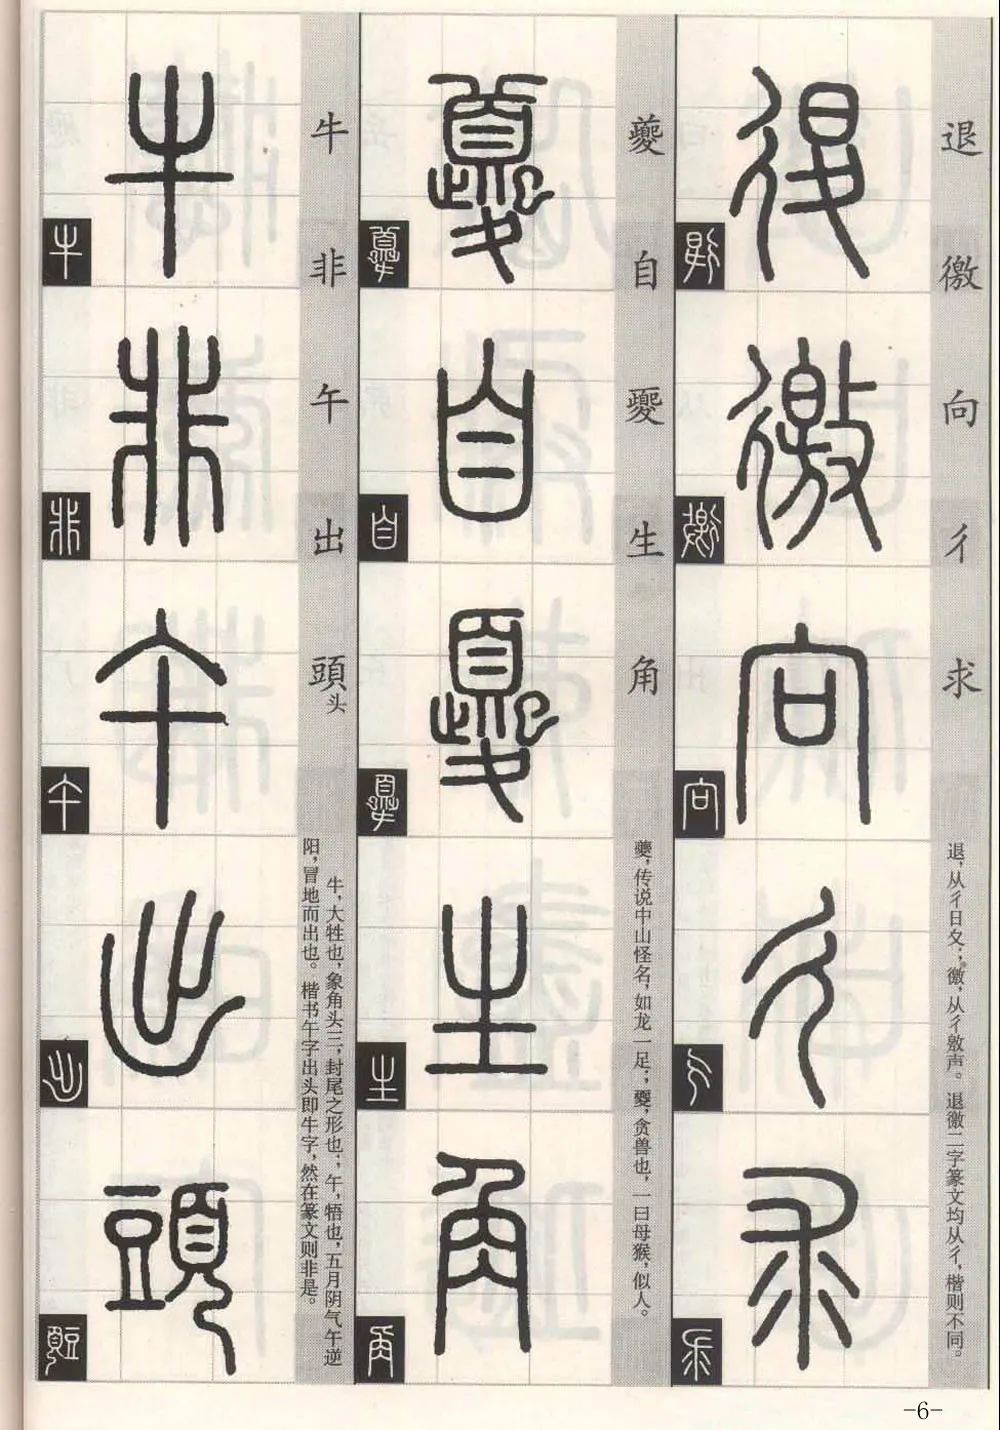 退徼向彳求
退，从彳日夊；徼，从彳敫声。退徼二字篆文均从彳，楷则不同。
夔自夒生角
夔，传说中山怪名，如龙一足；夒，贪兽也，一曰母猴，似人。
牛非午出頭头
牛，大牲也，象角头三，封尾之形也；午，牾也，五月阴气午逆
阳，冒地而出也。楷书午字出头即牛字，然在篆文则非是。
-6-